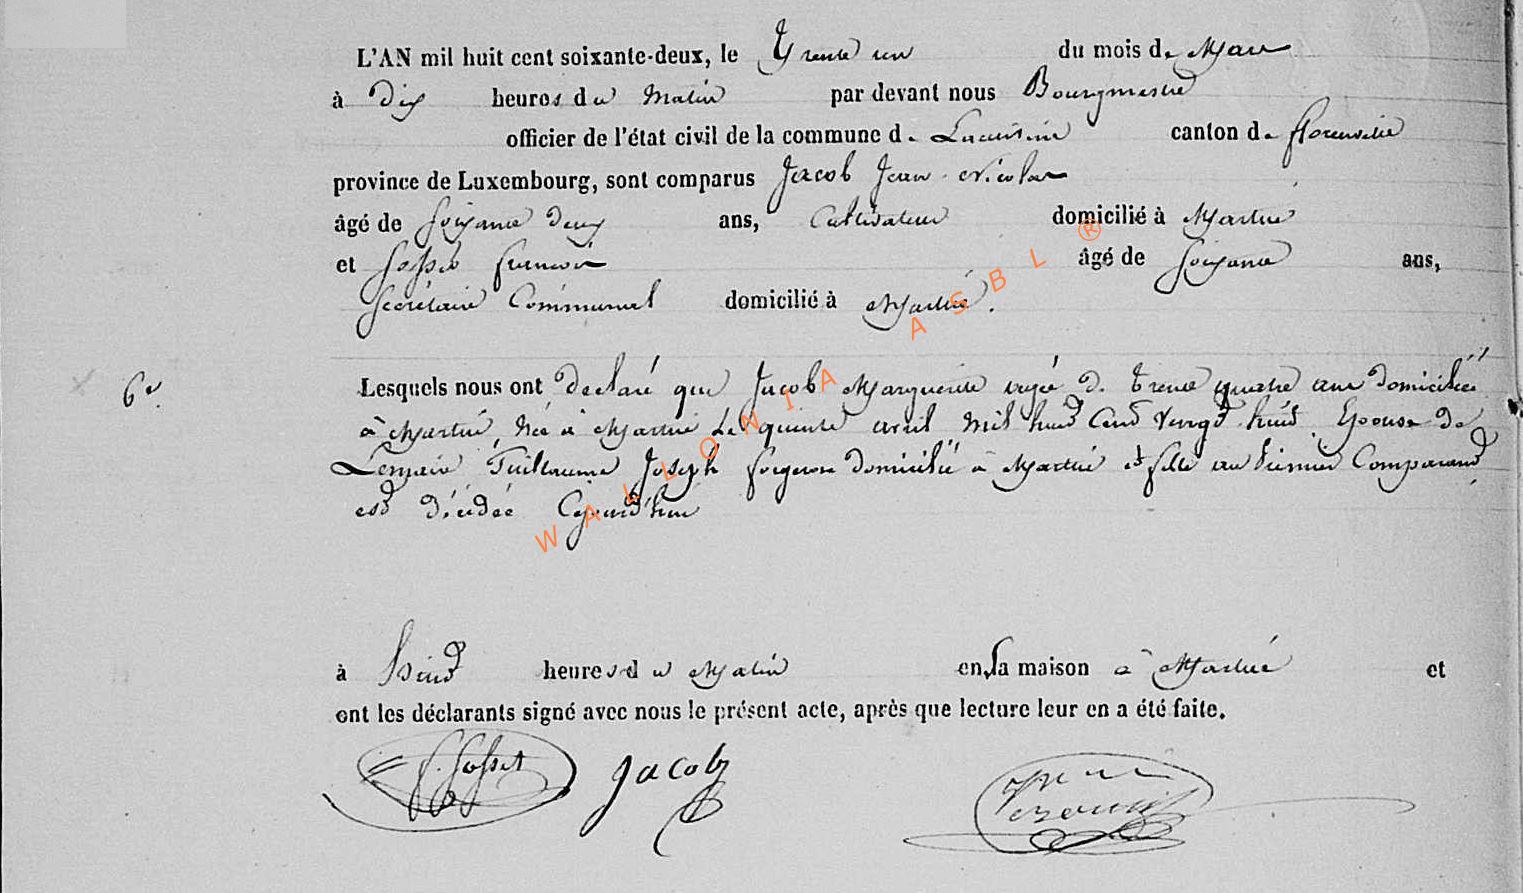 L'AN mil huit cent soixante-deux, le Trente un du mois de Mars
à Dix heures du Matin par devant nous Bourgmestre
officier de l'état civil de la commune de Lacuisine canton de florenville
province de Luxembourg, sont comparus Jacob Jean Nicolas
âgé de Soixante Deux ans, Cultivateur domicilié à Martué
et Gosset francois âgé de Soixante ans,
Secrétaire Communal domicilié à Martué.
6e. Lesquels nous ont déclaré que Jacob Marguerite agée de trente quatre ans domiciliée
à Martué, Née à Martué Le quinze avril mil huit Cent Vingt huit Epouse de
Lemaire Guillaume Joseph forgeron domicilié à Martué et fille au premier Comparant
est Décédée aujourd'hui
à huit heures du Matin en sa maison à Martué et
ont les déclarants signé avec nous le présent acte, après que lecture leur en a été faite.
f. Gosset Jacob
WALLONIA ASBL ®